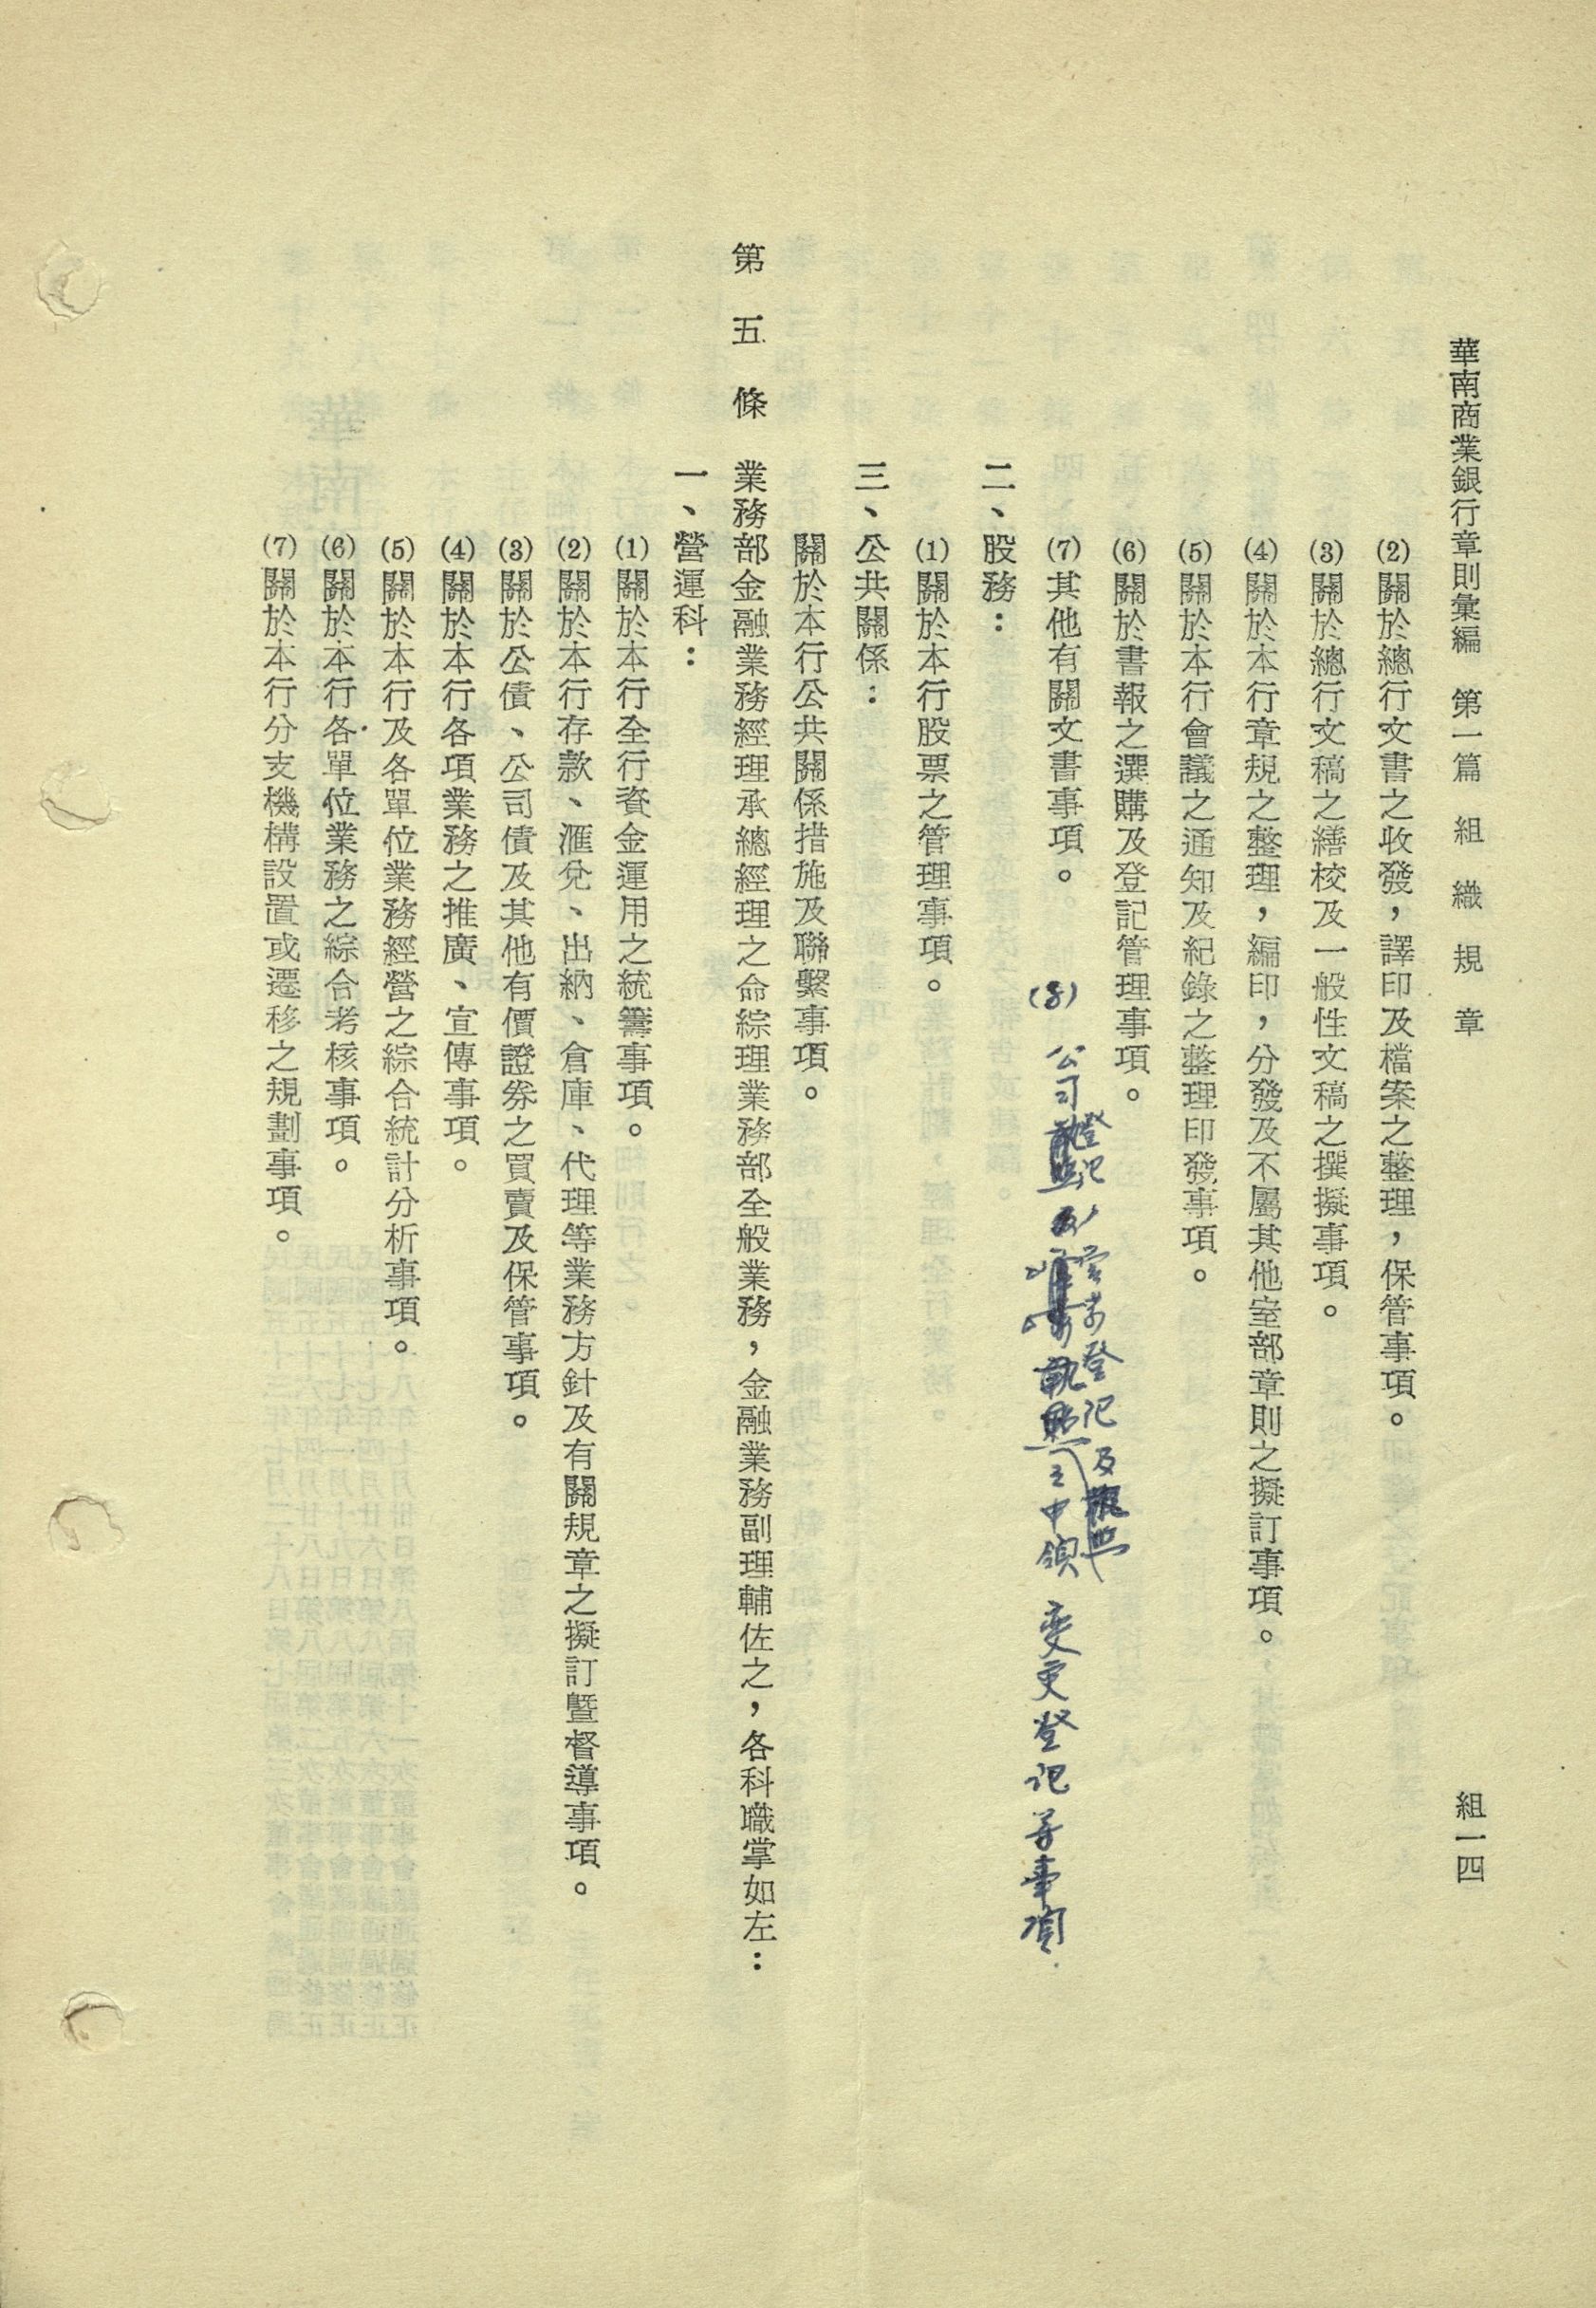 華南商業銀行章則彙編　第一篇　組織規章　組一四
(2)關於總行文書之收發，譯印及檔案之整理，保管事項。
(3)關於總行文稿之繕校及一般性文稿之撰擬事項。
(4)關於本行章規之整理，編印，分發及不屬其他室部章則之擬訂事項。
(5)關於本行會議之通知及紀錄之整理印發事項。
(6)關於書報之選購及登記管理事項。
(7)其他有關文書事項。
(8)公司登記及營業登記及執照之申領變更登記等事項.
二、股務：
(1)關於本行股票之管理事項。
三、公共關係：
關於本行公共關係措施及聯繫事項。
第五條　業務部金融業務經理承總經理之命綜理業務部全般業務，金融業務副理輔佐之，各科職掌如左：
一、營運科：
(1)關於本行全行資金運用之統籌事項。
(2)關於本行存款、滙兌、出納、倉庫、代理等業務方針及有關規章之擬訂暨督導事項。
(3)關於公債、公司債及其他有價證券之買賣及保管事項。
(4)關於本行各項業務之推廣、宣傳事項。
(5)關於本行及各單位業務經營之綜合統計分析事項。
(6)關於本行各單位業務之綜合考核事項。
(7)關於本行分支機構設置或遷移之規劃事項。